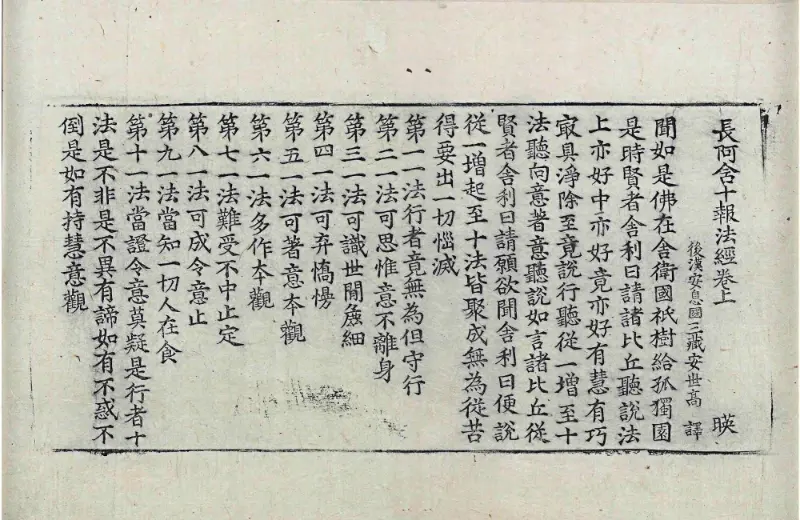 長阿含十報法經卷上　暎
後漢安息國三藏安世高　譯
聞如是佛在舍衛國祇樹給孤獨園
是時賢者舍利曰請諸比丘聽說法
上亦好中亦好竟亦好有慧有巧
冣具淨除至竟說行聽從一增至十
法聽向意著意聽說如言諸比丘從
賢者舍利曰請願欲聞舍利曰便說
從一增起至十法皆聚成無為從苦
得要出一切惱滅
第一一法行者竟無為但守行
第二一法可思惟意不離身
第三一法可識世閒麁細
第四一法可弃憍慢
第五一法可著意本觀
第六一法多作本觀
第七一法難受不中止定
第八一法可成令意止
第九一法當知一切人在食
第十一法當證令意莫疑是行者十
法是不非是不異有諦如有不惑不
倒是如有持慧意觀